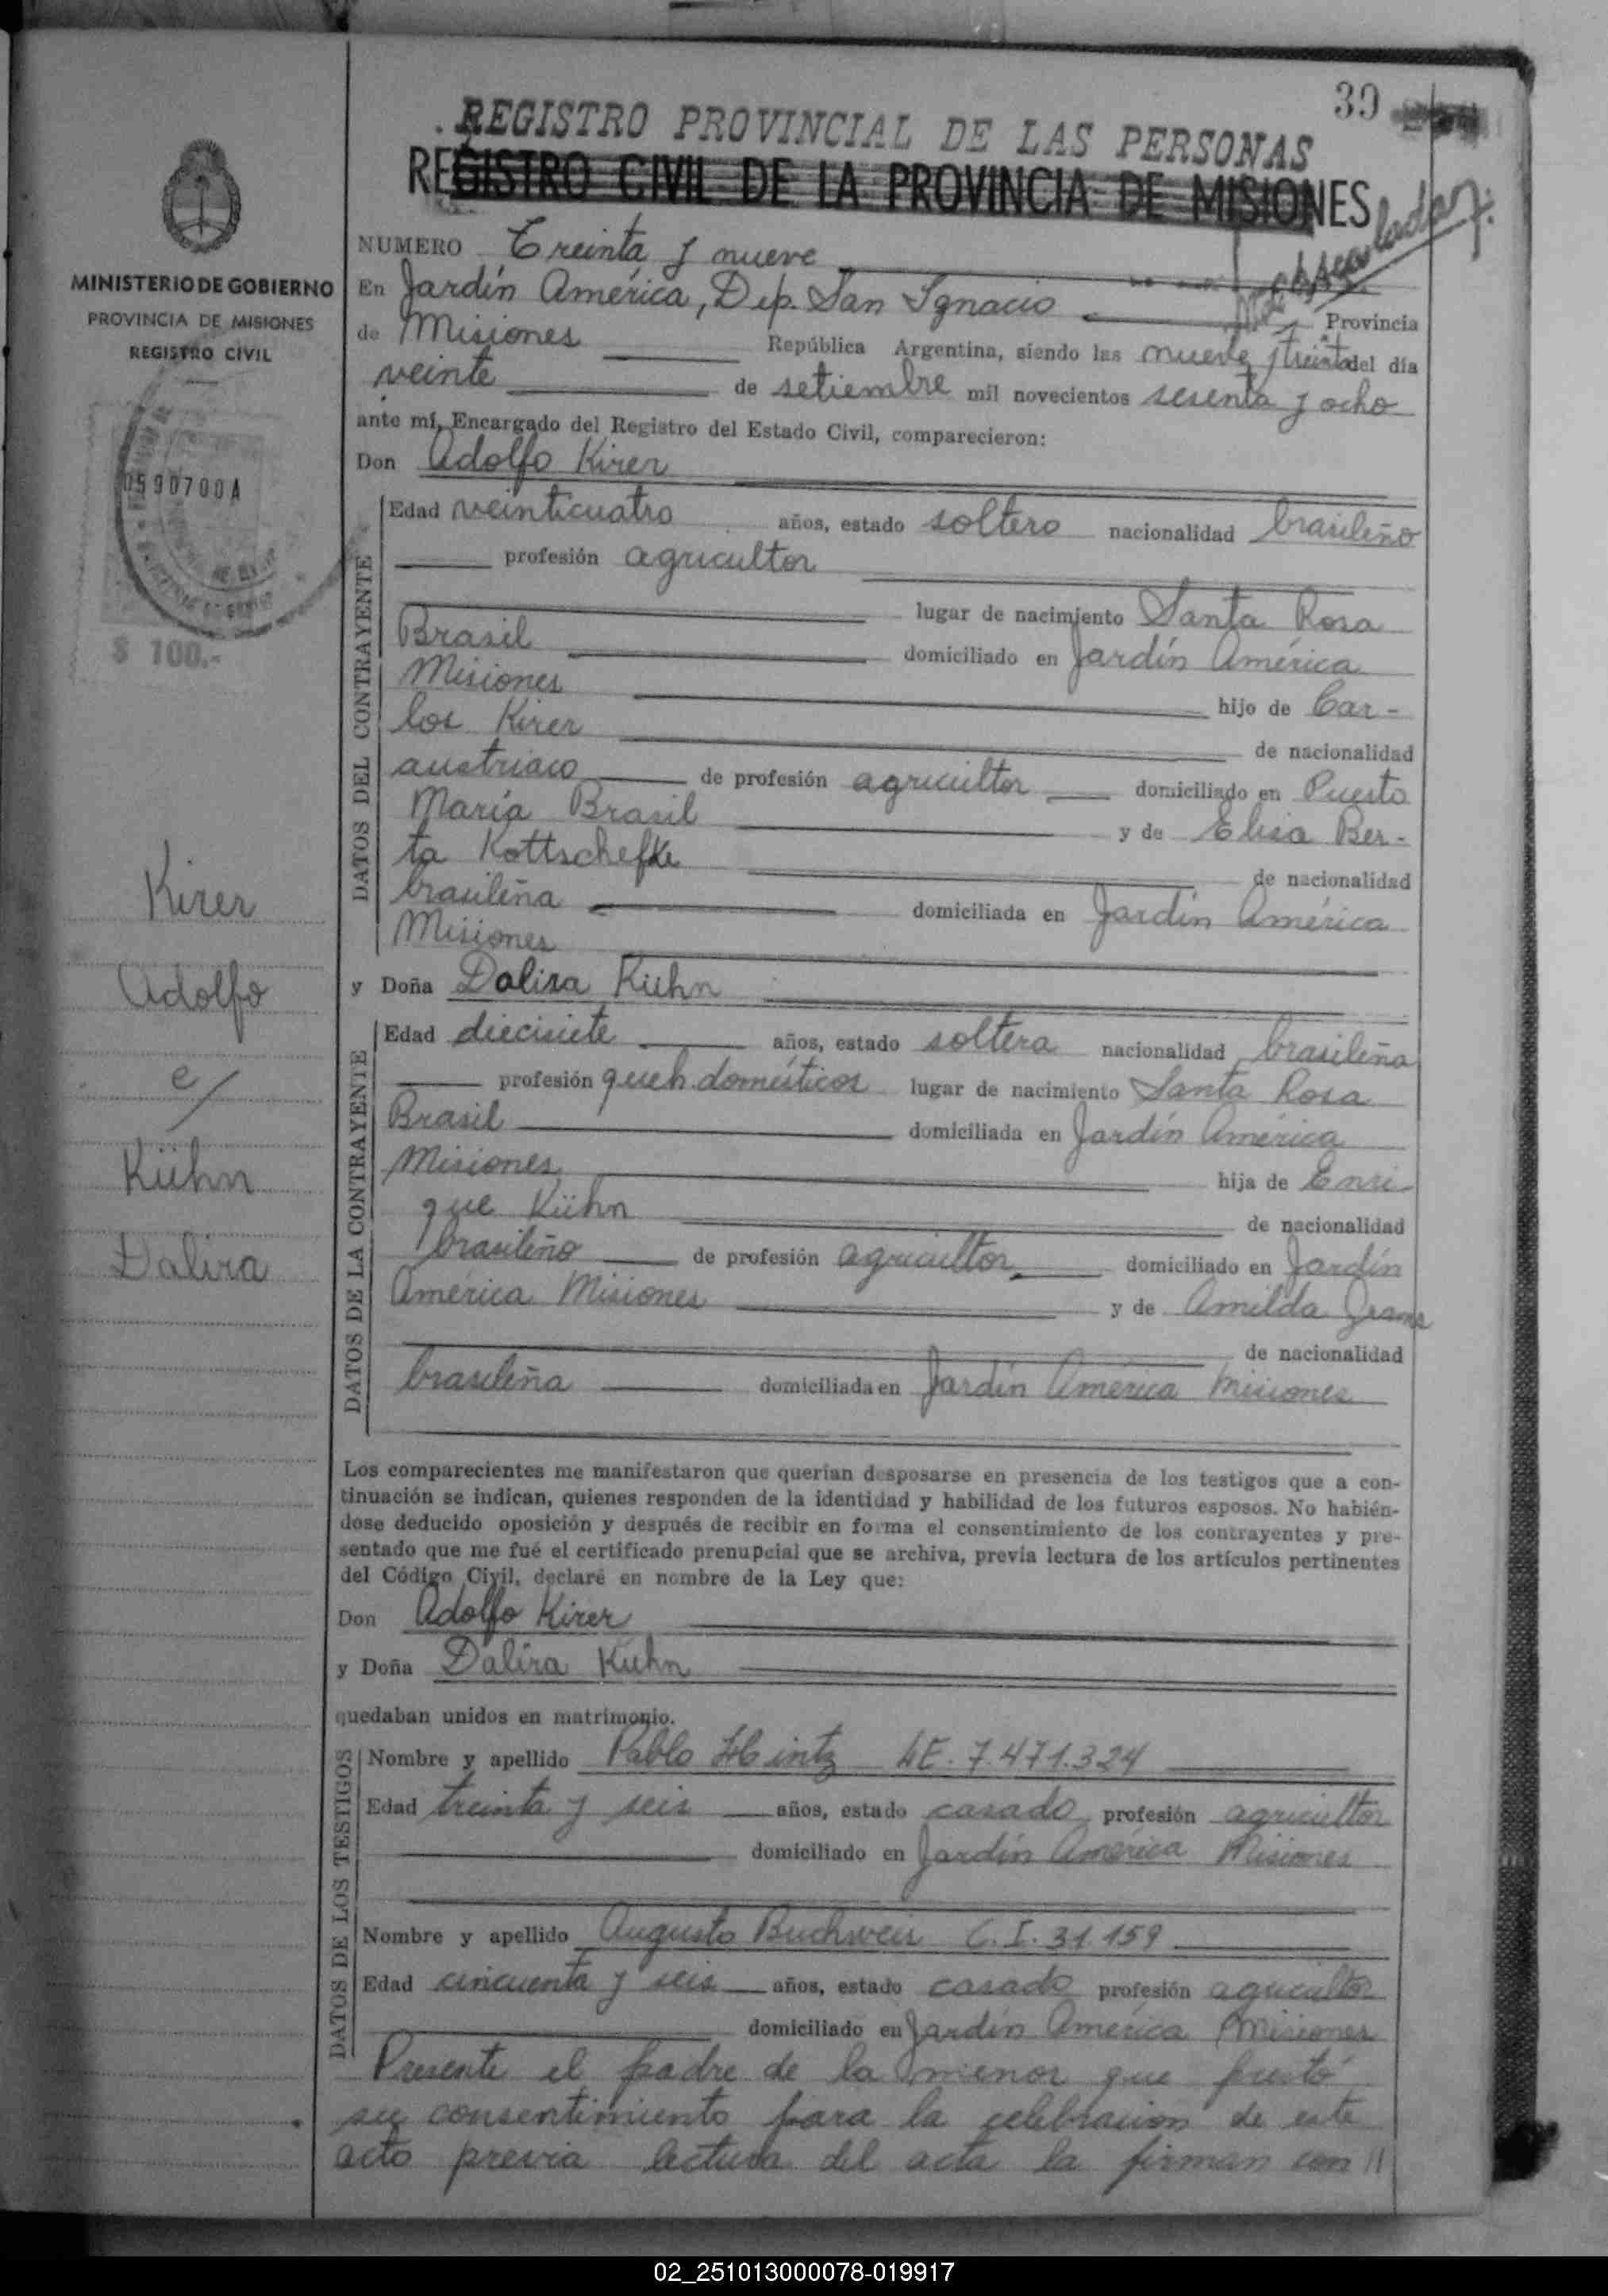 39
REGISTRO PROVINCIAL DE LAS PERSONAS
REGISTRO CIVIL DE LA PROVINCIA DE MISIONES
MINISTERIO DE GOBIERNO
PROVINCIA DE MISIONES
REGISTRO CIVIL
0590700A
$ 100.-
Kirer
Adolfo
c/
Kühn
Dalira
NUMERO Treinta y nueve
En Jardín América, Dep. San Ignacio Provincia
de Misiones República Argentina, siendo las nueve y treinta del día
veinte de setiembre mil novecientos sesenta y ocho
ante mí, Encargado del Registro del Estado Civil, comparecieron:
Don Adolfo Kirer
DATOS DEL CONTRAYENTE
Edad veinticuatro años, estado soltero nacionalidad brasileño
profesión agricultor
lugar de nacimiento Santa Rosa
Brasil domiciliado en Jardín América
Misiones hijo de Car-
los Kirer de nacionalidad
austriaco de profesión agricultor domiciliado en Puesto
María Brasil y de Elisa Ber-
ta Kottschefke de nacionalidad
brasileña domiciliada en Jardín América
Misiones
y Doña Dalira Kuhn
DATOS DE LA CONTRAYENTE
Edad diecisiete años, estado soltera nacionalidad brasileña
profesión queh. domésticos lugar de nacimiento Santa Rosa
Brasil domiciliada en Jardín América
Misiones hija de Enri
que Kühn de nacionalidad
brasileño de profesión agricultor domiciliado en Jardín
América Misiones y de Amilda
de nacionalidad
brasileña domiciliada en Jardín América Misiones
Los comparecientes me manifestaron que querían desposarse en presencia de los testigos que a con-
tinuación se indican, quienes responden de la identidad y habilidad de los futuros esposos. No habién-
dose deducido oposición y después de recibir en forma el consentimiento de los contrayentes y pre-
sentado que me fué el certificado prenupcial que se archiva, previa lectura de los artículos pertinentes
del Código Civil, declaré en nombre de la Ley que:
Don Adolfo Kirer
y Doña Dalira Kuhn
quedaban unidos en matrimonio.
DATOS DE LOS TESTIGOS
Nombre y apellido Pablo Hintz LE. 7.471.324
Edad treinta y seis años, estado casado profesión agricultor
domiciliado en Jardín América Misiones
Nombre y apellido Augusto Buchweis C.I. 31.159
Edad cincuenta y seis años, estado casado profesión agricultor
domiciliado en Jardín América Misiones
Presente el padre de la menor que prestó
su consentimiento para la celebracion de este
acto previa lectura del acta la firman con //
02_251013000078-019917